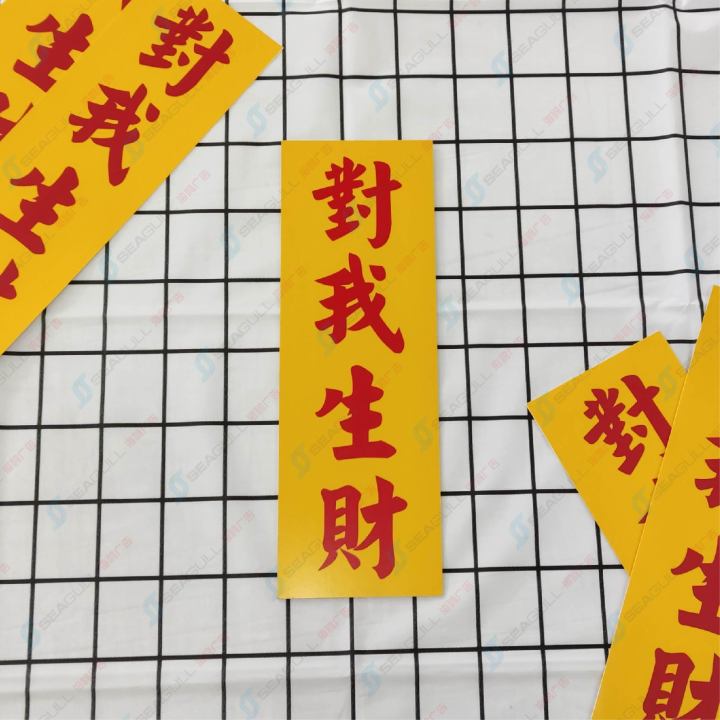 對我生財
對我生
生
對
我生財
SEAGULL 海鸥广告